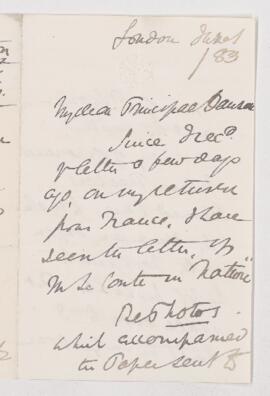 London June 1
/83
My dear Principal Dawson
Since I rec.d
yr letter a few days
ago, on my return
from France, I have
seen the letter of
M Le Conte in "Nature"
Re Photos.
which accompanied
the Paper sent to